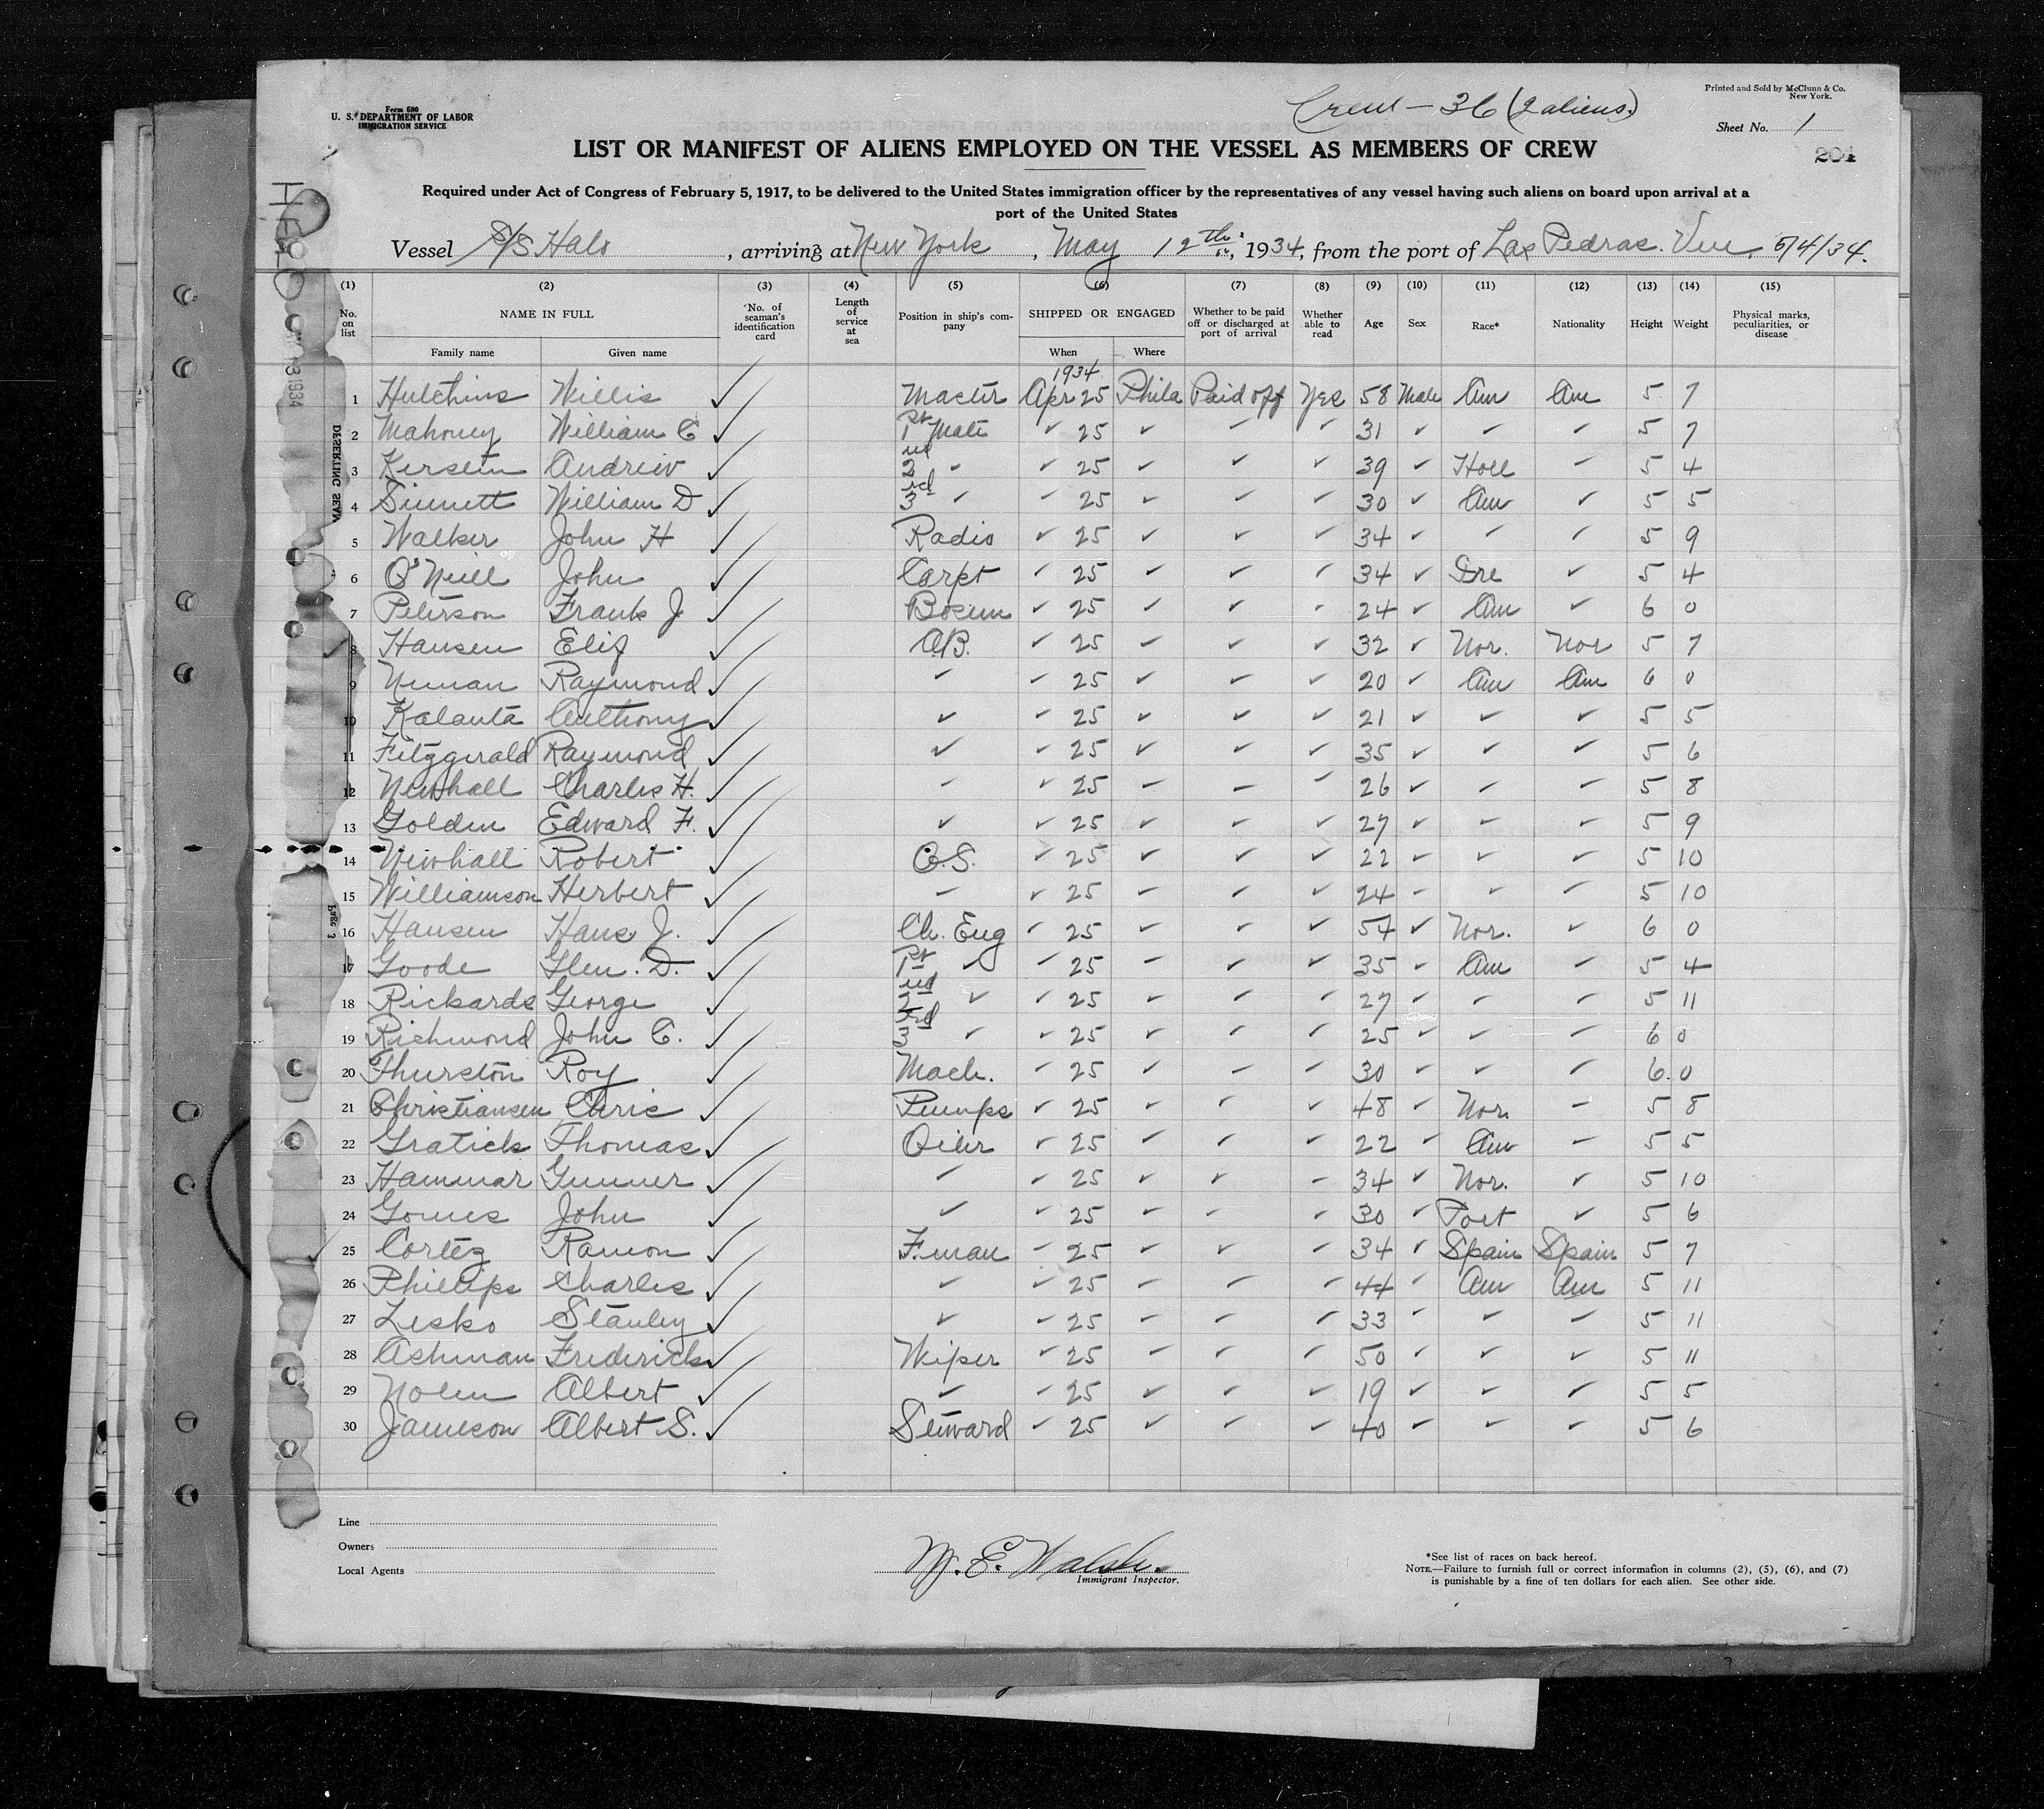 Form 680
U. S. DEPARTMENT OF LABOR
IMMIGRATION SERVICE
Crew - 36 (2 aliens)
Printed and Sold by McClunn & Co.
New York.
Sheet No. 1
204
LIST OR MANIFEST OF ALIENS EMPLOYED ON THE VESSEL AS MEMBERS OF CREW
Required under Act of Congress of February 5, 1917, to be delivered to the United States immigration officer by the representatives of any vessel having such aliens on board upon arrival at a
port of the United States
Vessel S/S Halo, arriving at New York, May 12th, 1934, from the port of Las Pedras. Ven. 5/4/34.
(1) (2) (3) (4) (5) (6) (7) (8) (9) (10) (11) (12) (13) (14) (15)
No. on list NAME IN FULL No. of seaman's identification card Length of service at sea Position in ship's company SHIPPED OR ENGAGED Whether to be paid off or discharged at port of arrival Whether able to read Age Sex Race* Nationality Height Weight Physical marks, peculiarities, or disease
Family name Given name When Where
1934
1 Hutchins Willis ✓ Master Apr 25 Phila Paid off Yes 58 Male Am Am 5 7
2 Mahoney William C ✓ 1st Mate ✓ 25 ✓ ✓ ✓ 31 ✓ ✓ ✓ 5 7
3 Andrew ✓ 2nd ✓ ✓ 25 ✓ ✓ ✓ 39 ✓ Holl ✓ 5 4
4 Sinnett William D ✓ 3rd ✓ ✓ 25 ✓ ✓ ✓ 30 ✓ Am ✓ 5 5
5 Walker John H ✓ Radio ✓ 25 ✓ ✓ ✓ 34 ✓ ✓ ✓ 5 9
6 O'Neill John ✓ Carpt ✓ 25 ✓ ✓ ✓ 34 ✓ Ire ✓ 5 4
7 Peterson Frank J ✓ Bosun ✓ 25 ✓ ✓ ✓ 24 ✓ Am ✓ 6 0
8 Hansen Elif ✓ A.B. ✓ 25 ✓ ✓ ✓ 32 ✓ Nor. Nor 5 7
9 Raymond ✓ ✓ ✓ 25 ✓ ✓ ✓ 20 ✓ Am Am 6 0
10 Kalanta Anthony ✓ ✓ ✓ 25 ✓ ✓ ✓ 21 ✓ ✓ ✓ 5 5
11 Fitzgerald Raymond ✓ ✓ ✓ 25 ✓ ✓ ✓ 35 ✓ ✓ ✓ 5 6
12 Newhall Charles H. ✓ ✓ ✓ 25 ✓ ✓ ✓ 26 ✓ ✓ ✓ 5 8
13 Golden Edward F. ✓ ✓ ✓ 25 ✓ ✓ ✓ 27 ✓ ✓ ✓ 5 9
14 Newhall Robert ✓ O.S. ✓ 25 ✓ ✓ ✓ 22 ✓ ✓ ✓ 5 10
15 Williamson Herbert ✓ ✓ ✓ 25 ✓ ✓ ✓ 24 ✓ ✓ ✓ 5 10
16 Hansen Hans J. ✓ Ch. Eng ✓ 25 ✓ ✓ ✓ 54 ✓ Nor. ✓ 6 0
17 Goode Glen. D. ✓ 1st ✓ ✓ 25 ✓ ✓ ✓ 35 ✓ Am ✓ 5 4
18 Rickards George ✓ 2nd ✓ ✓ 25 ✓ ✓ ✓ 27 ✓ ✓ ✓ 5 11
19 Richmond John C. ✓ 3rd ✓ ✓ 25 ✓ ✓ ✓ 25 ✓ ✓ ✓ 6 0
20 Thurston Roy ✓ Mach. ✓ 25 ✓ ✓ ✓ 30 ✓ ✓ ✓ 6.0
21 Christiansen Chris ✓ Pumps ✓ 25 ✓ ✓ ✓ 48 ✓ Nor. ✓ 5 8
22 Gratick Thomas ✓ Oiler ✓ 25 ✓ ✓ ✓ 22 ✓ Am ✓ 5 5
23 Hammar Gunner ✓ ✓ ✓ 25 ✓ ✓ ✓ 34 ✓ Nor. ✓ 5 10
24 Gomes John ✓ ✓ ✓ 25 ✓ ✓ ✓ 30 ✓ Port ✓ 5 6
25 Cortez Ramon ✓ F.man ✓ 25 ✓ ✓ ✓ 34 ✓ Spain Spain 5 7
26 Phillips Charles ✓ ✓ ✓ 25 ✓ ✓ ✓ 44 ✓ Am Am 5 11
27 Lesko Stanley ✓ ✓ ✓ 25 ✓ ✓ ✓ 33 ✓ ✓ ✓ 5 11
28 Ashman Frederick ✓ Wiper ✓ 25 ✓ ✓ ✓ 50 ✓ ✓ ✓ 5 11
29 Nolen Albert ✓ ✓ ✓ 25 ✓ ✓ ✓ 19 ✓ ✓ ✓ 5 5
30 Jameson Albert S. ✓ Steward ✓ 25 ✓ ✓ ✓ 40 ✓ ✓ ✓ 5 6
Line
Owners
Local Agents
E. Walsh.
Immigrant Inspector.
*See list of races on back hereof.
NOTE.—Failure to furnish full or correct information in columns (2), (5), (6), and (7)
is punishable by a fine of ten dollars for each alien. See other side.
DESERTING SEAM
Page 3